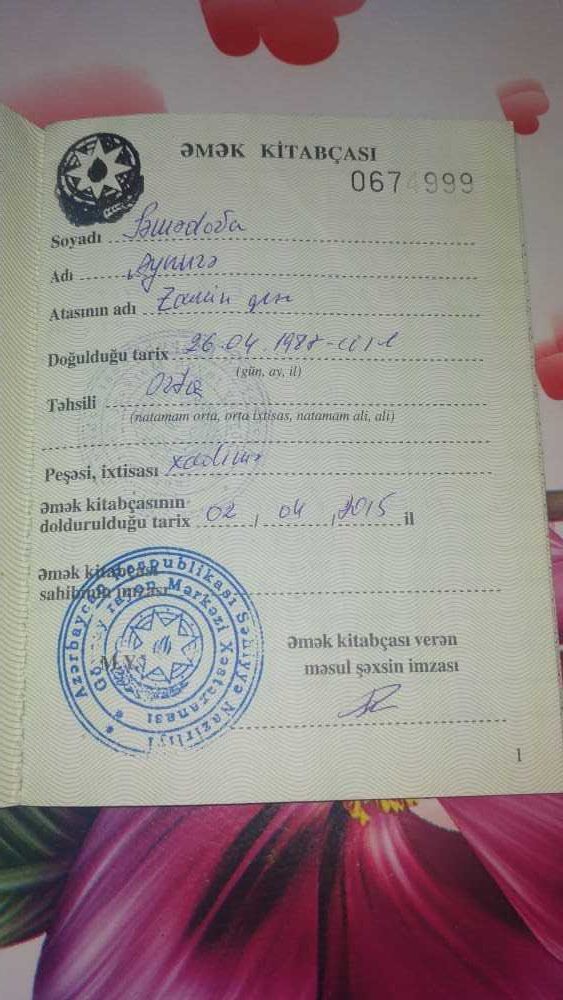 ƏMƏK KİTABÇASI
0674999
Soyadı Səmədova
Adı Aynurə
Atasının adı Zamin qızı
Doğulduğu tarix 26.04 1987-ci il
(gün, ay, il)
Təhsili Orta
(natamam orta, orta ixtisas, natamam ali, ali)
Peşəsi, ixtisası xadimə
Əmək kitabçasının
doldurulduğu tarix 02 / 04 / 2015 il
Əmək kitabçası
sahibinin imzası
Əmək kitabçası verən
məsul şəxsin imzası
M.Y.
Azərbaycan Respublikası Səhiyyə Nazirliyi
rayon Mərkəzi Xəstəxanası
1